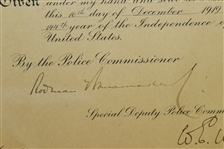 Given under my hand and seal
this 10th day of December 1919
144th year of the Independence of
United States.
By the Police Commissioner
Rodman Wanamaker
Special Deputy Police Comm